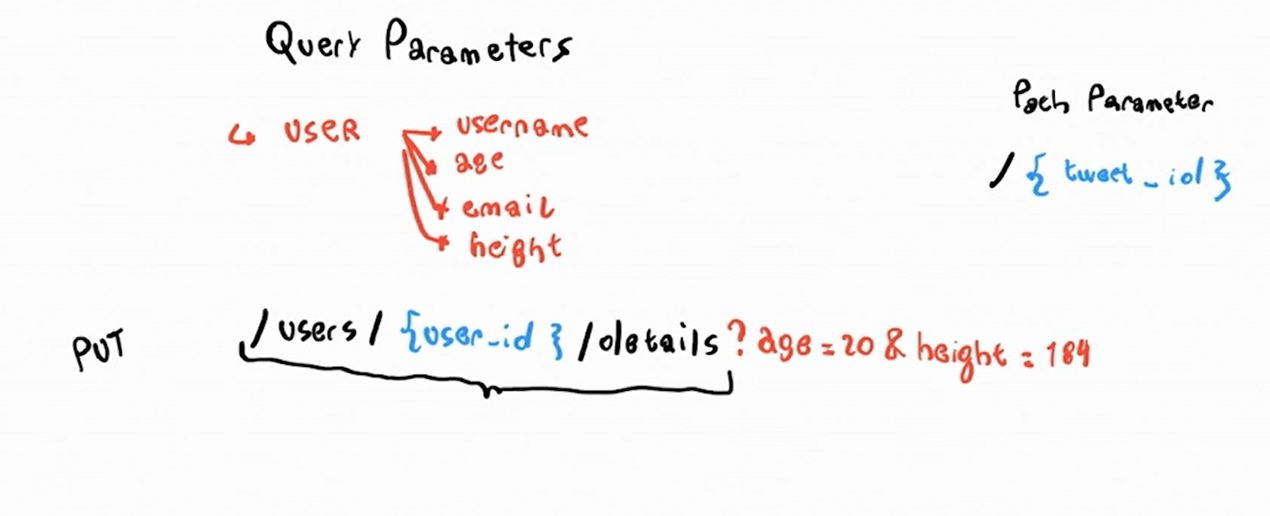 Query Parameters
USER
username
age
email
height
Path Parameter
/{tweet_id}
PUT /users/{user_id}/details?age=20&height=184